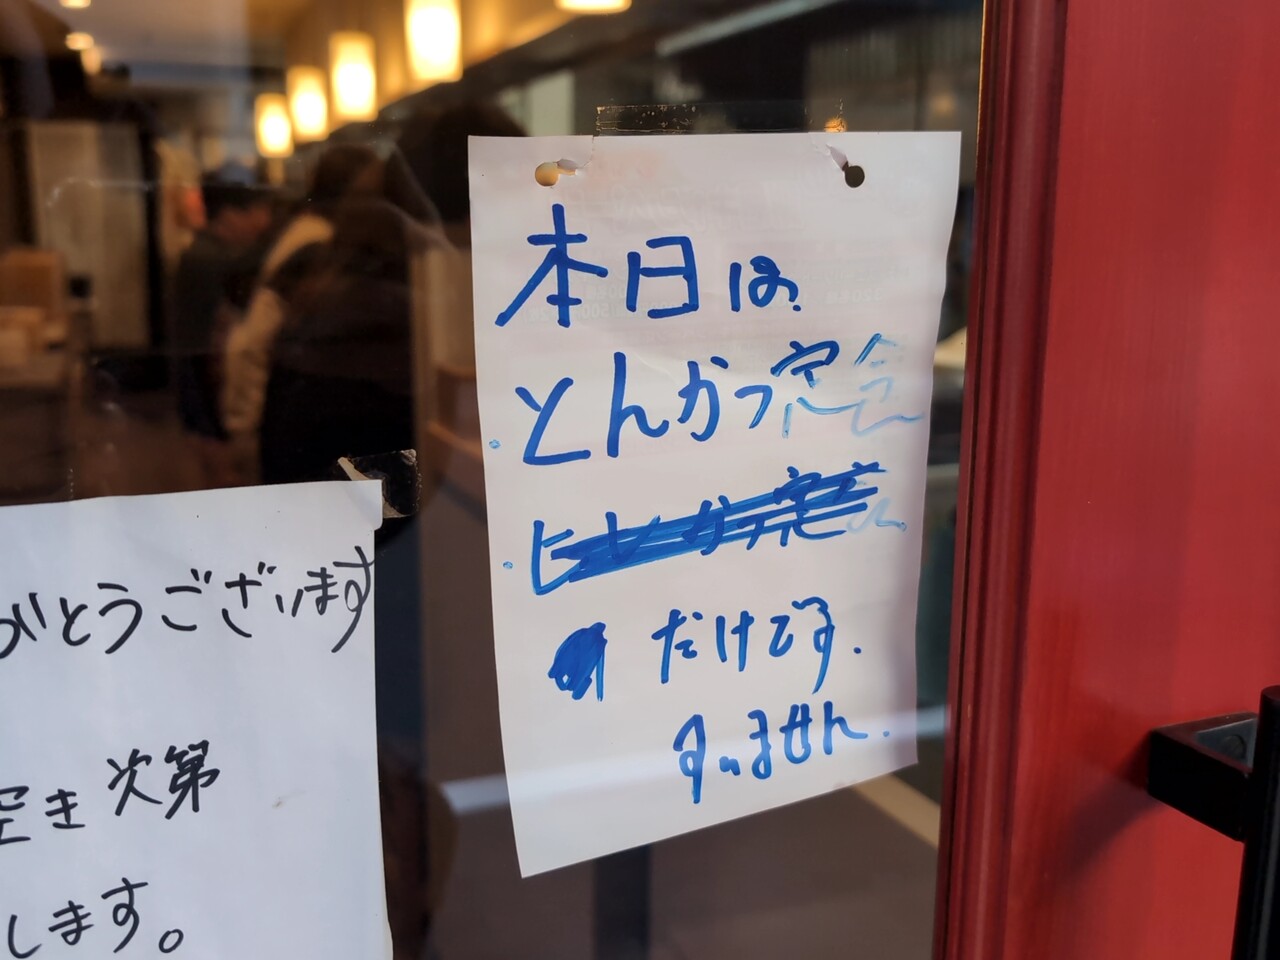 本日は、
・とんかつ定食
・ヒレかつ定食
だけです.
すいません.
がとうございます
空き次第
します。